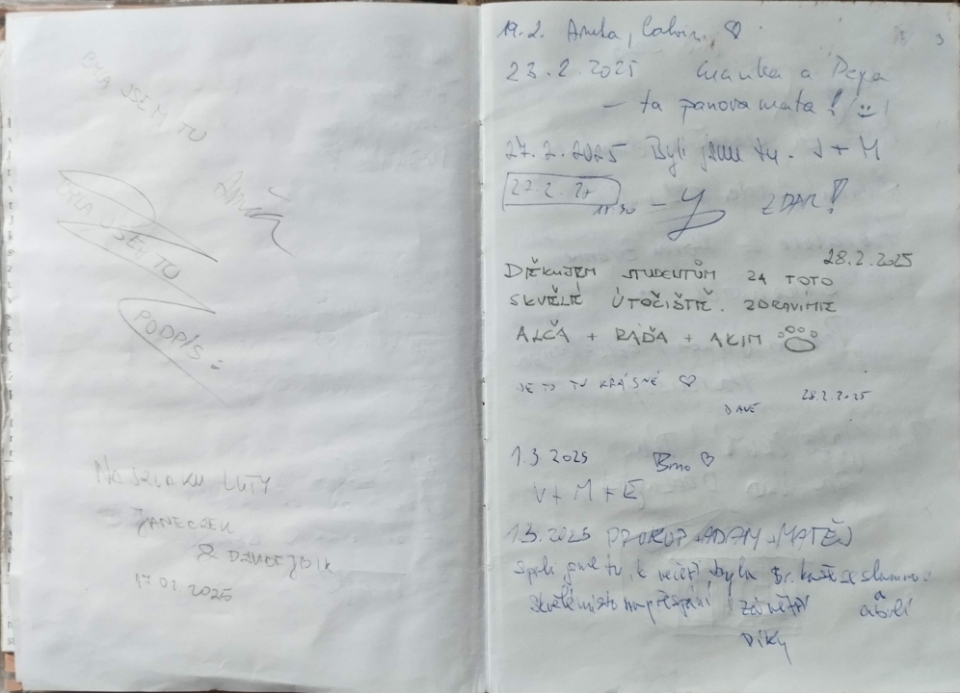 BYLA JSEM TU
BYLA JSEM TU
PODPIS:
NA SZLAKU LUTY
JANECZEK
&
17.01.2025
3
19.2. Aneta, Calvin, ♡
23.2.2025 a Pepa
– ta panoramata!
27.2.2025 Byli jsme tu. J + M
27.2. – ZDAR!
28.2.2025
DĚKUJEM STUDENTŮM ZA TOTO
SKVĚLÉ ÚTOČIŠTĚ. ZDRAVÍME
ALČA + RÁĎA + AKIM
JE TO TU KRÁSNÉ ♡
DAVE 28.2.2025
1.3 2025 Brno ♡
V + M + E
1.3.2025 PROKOP + ADAM + MATĚJ
Spali jsme tu, k večeři byla kaše se
Skvělé místo na přespání závětří a
Díky